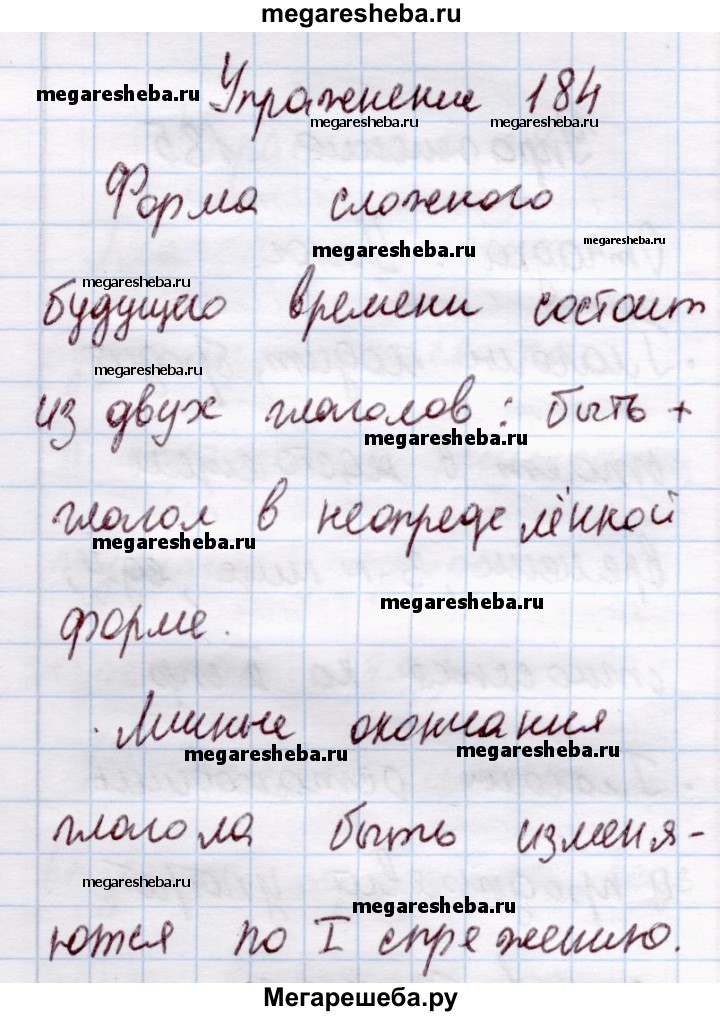 megaresheba.ru
Упражнение 184
megaresheba.ru
megaresheba.ru
megaresheba.ru
Форма сложного
megaresheba.ru
megaresheba.ru
megaresheba.ru
будущего времени состоит
megaresheba.ru
из двух глаголов: быть +
megaresheba.ru
глагол в неопределённой
megaresheba.ru
megaresheba.ru
форме.
Личные окончания
megaresheba.ru
megaresheba.ru
глагола быть изменя-
megaresheba.ru
megaresheba.ru
ются по I спряжению.
Мегарешеба.ру